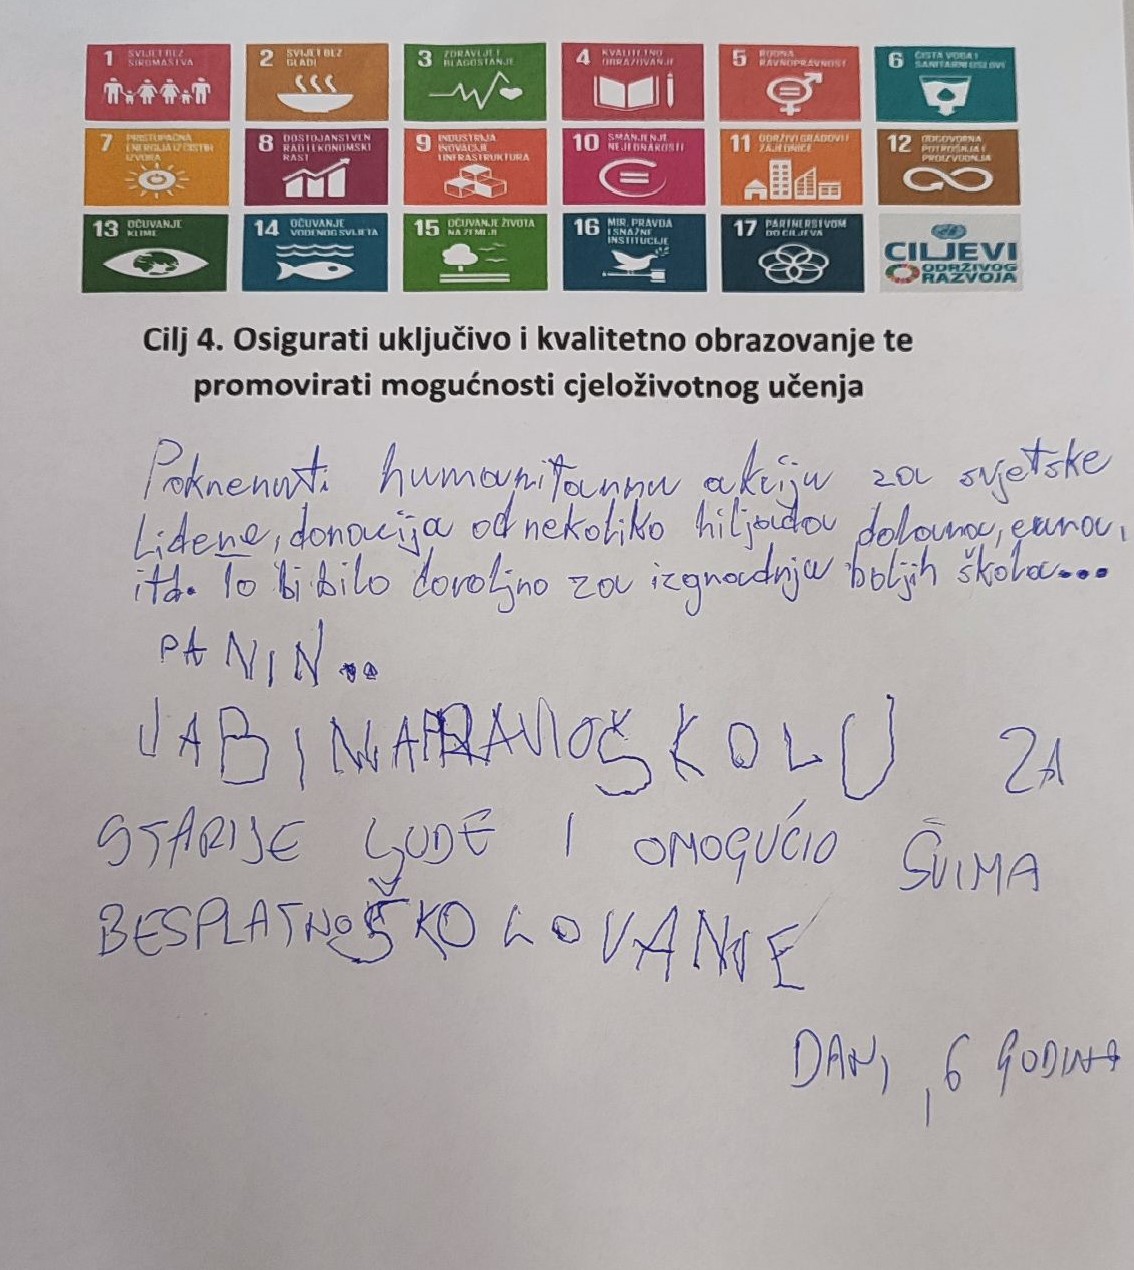 1 SVIJET BEZ SIROMAŠTVA
2 SVIJET BEZ GLADI
3 ZDRAVLJE I BLAGOSTANJE
4 KVALITETNO OBRAZOVANJE
5 RODNA RAVNOPRAVNOST
6 ČISTA VODA I SANITARNI USLOVI
7 PRISTUPAČNA ENERGIJA IZ ČISTIH IZVORA
8 DOSTOJANSTVEN RAD I EKONOMSKI RAST
9 INDUSTRIJA INOVACIJE I INFRASTRUKTURA
10 SMANJENJE NEJEDNAKOSTI
11 ODRŽIVI GRADOVI I ZAJEDNICE
12 ODGOVORNA POTROŠNJA I PROIZVODNJA
13 OČUVANJE KLIME
14 OČUVANJE VODENOG SVIJETA
15 OČUVANJE ŽIVOTA NA ZEMLJI
16 MIR, PRAVDA I SNAŽNE INSTITUCIJE
17 PARTNERSTVOM DO CILJEVA
CILJEVI
ODRŽIVOG
RAZVOJA
Cilj 4. Osigurati uključivo i kvalitetno obrazovanje te
promovirati mogućnosti cjeloživotnog učenja
Pokrenuti humanitarnu akciju za svjetske
lidere, donacija od nekoliko hiljada dolara, eura,
itd. To bi bilo dovoljno za izgradnju boljih škola...
JA BI NAPRAVIO ŠKOLU ZA
STARIJE LJUDE I OMOGUĆIO SVIMA
BESPLATNO ŠKOLOVANJE
DANI, 6 GODINA